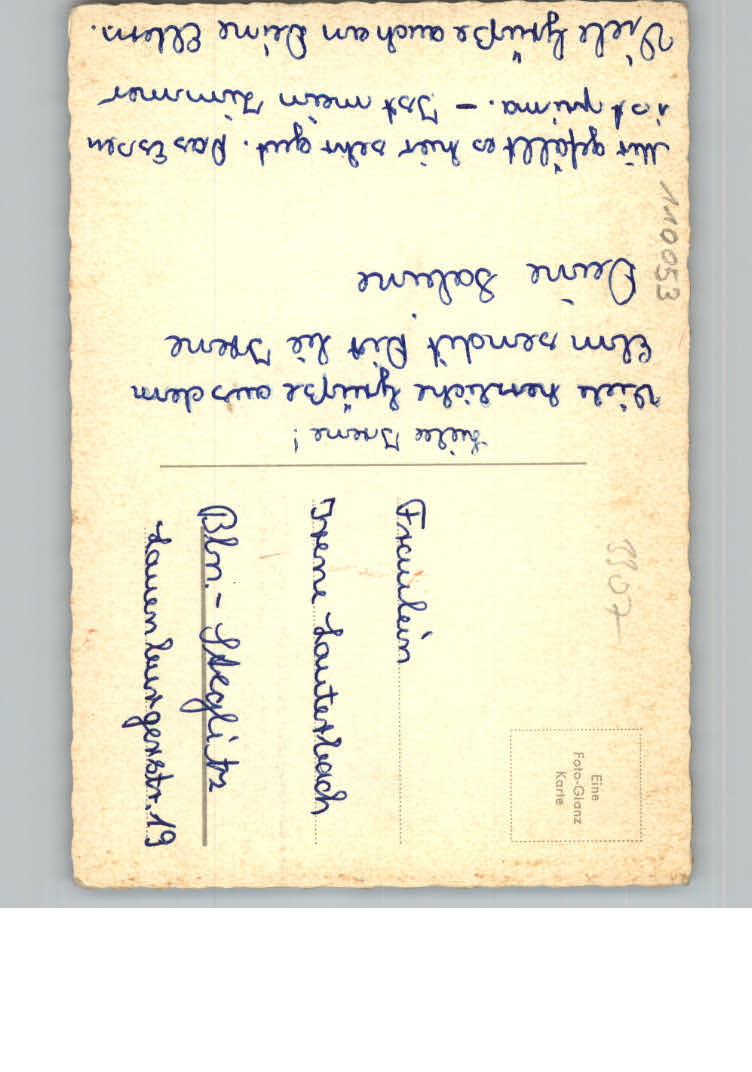 Liebe Irene!
Viele herzliche Grüße aus dem
Elm sendet Dir Irene
Deine Sabine
Mir gefällt es hier sehr gut. Das Essen
ist prima. – Ist mein Zimmer
Viele Grüße auch an Deine Eltern.
110053
Eine
Foto-Glanz
Karte
Fräulein
Irene Lauterbach
Bln.- Steglitz
Lauenburgerstr. 19